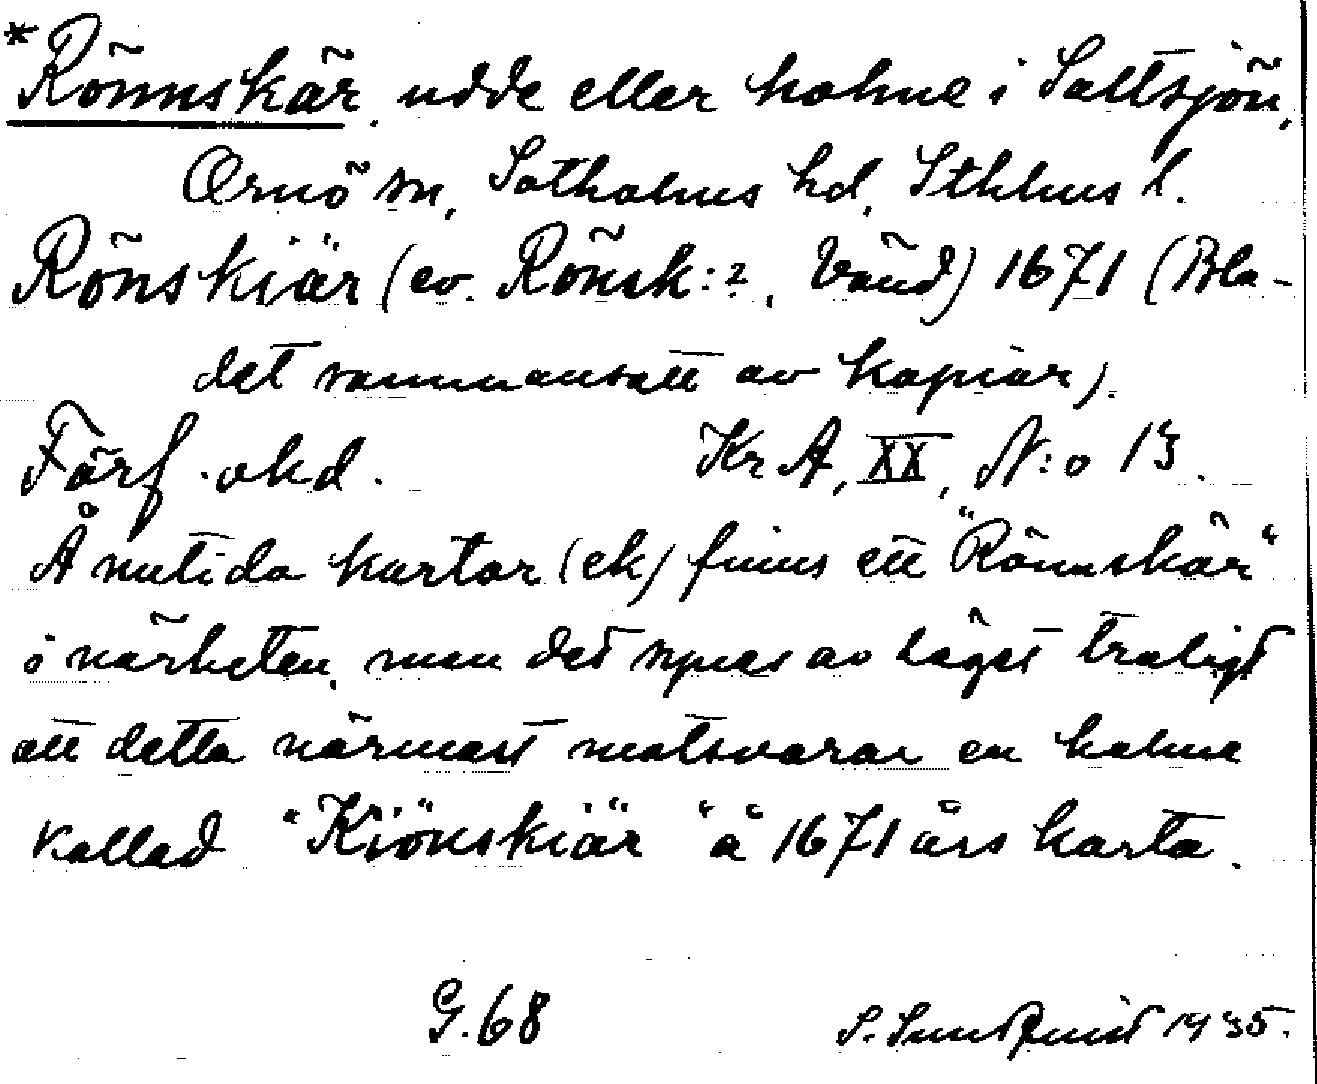 *Rönnskär, udde eller holme i Saltsjön,
Ornö sn, Sotholms hd, Sthlms l.
Rönskiär (ev. Rönsk: 2, Vänd) 1671 (Bla-
det sammansatt av kopior).
Förf. okd. Kr A, XX, N:o 13.
Å nutida kartor (ek) finns ett "Rönnskär"
i närheten, men det synes av läget troligt
att detta närmast motsvarar en holme
kallad "Kiönskiär" å 1671 års karta.
G. 68 S. Sundquist 1935.